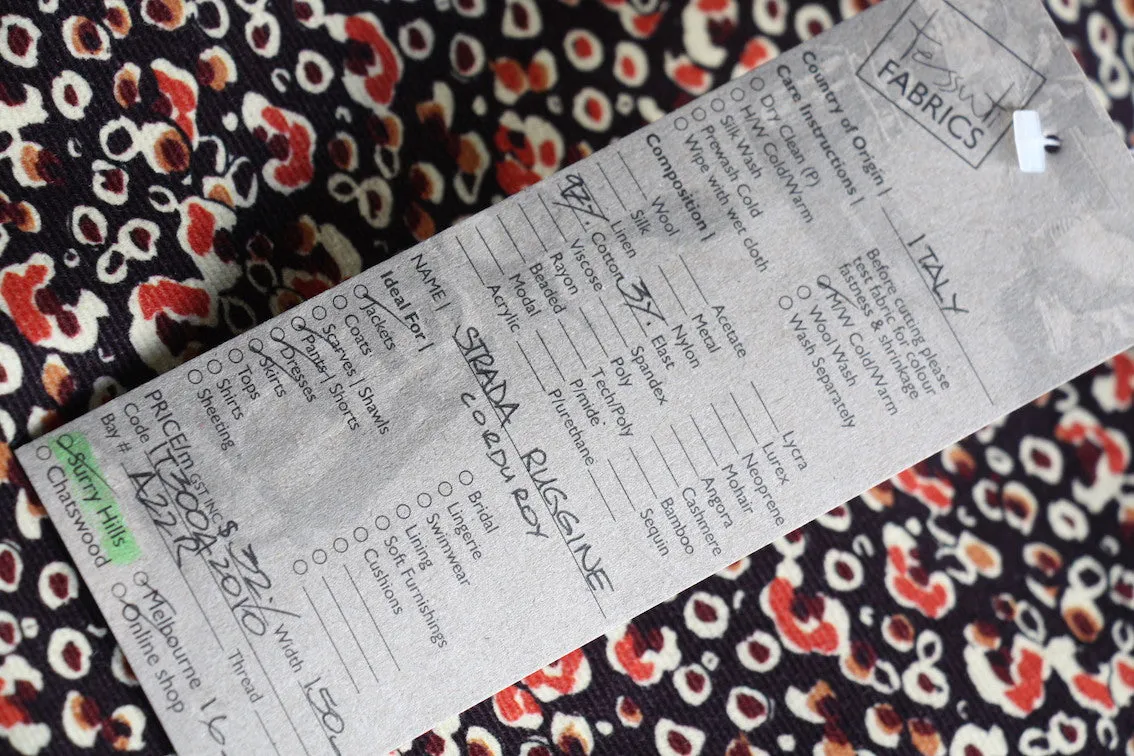 Tessuti
FABRICS
Country of Origin | ITALY
Care Instructions |
Dry Clean (P)
H/W Cold/Warm
Silk Wash
Prewash Cold
Wipe with wet cloth
Before cutting please
test fabric for colour
fastness & shrinkage
M/W Cold/Warm
Wool Wash
Wash Separately
Composition |
Wool
Silk
Linen
97% Cotton
Viscose
Rayon
Beaded
Modal
Acrylic
Acetate
Metal
Nylon
3% Elast
Spandex
Poly
Tech/Poly
P/mide
P/urethane
Lycra
Lurex
Neoprene
Mohair
Angora
Cashmere
Bamboo
Sequin
NAME | STRADA RUGGINE
CORDUROY
Ideal For |
Jackets
Coats
Scarves | Shawls
Dresses
Pants | Shorts
Skirts
Tops
Shirts
Sheeting
Bridal
Lingerie
Swimwear
Lining
Soft Furnishings
Cushions
PRICE/m GST INC $ 32.- Width 150
Code | T30042010 Thread
Bay # A22R
Surry Hills
Chatswood
Melbourne
Online shop